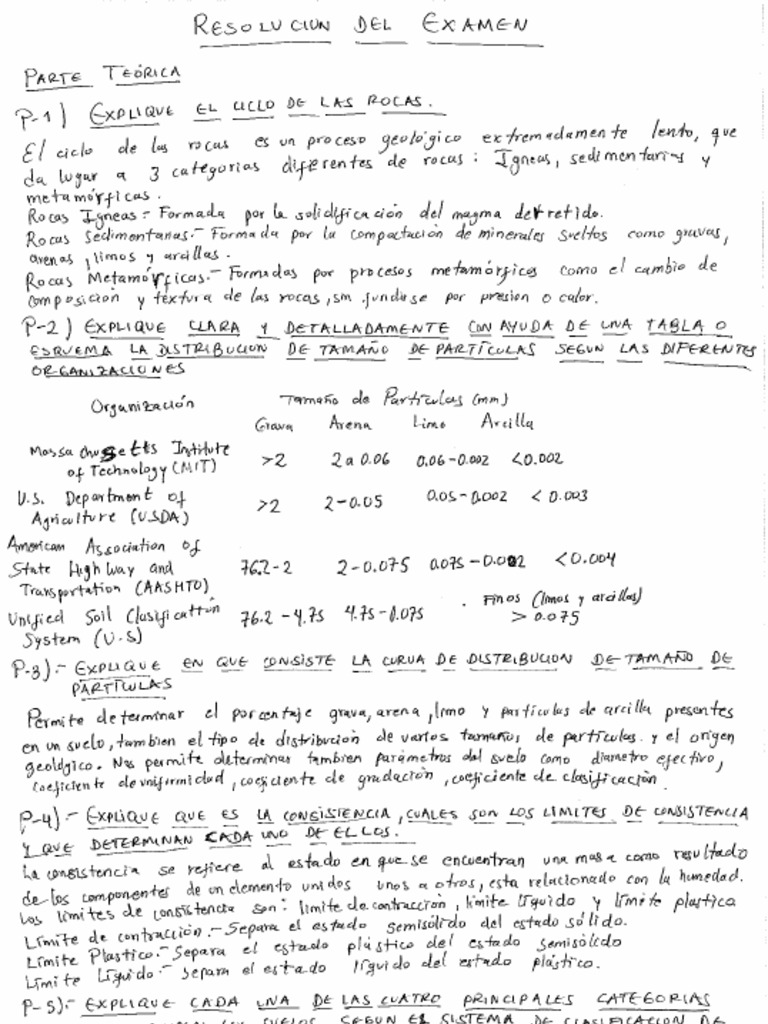 RESOLUCION DEL EXAMEN
PARTE TEÓRICA
P-1) EXPLIQUE EL CICLO DE LAS ROCAS.
El ciclo de las rocas es un proceso geológico extremadamente lento, que
da lugar a 3 categorias diferentes de rocas: Igneas, sedimentarias y
metamórficas.
Rocas Igneas.- Formada por la solidificación del magma derretido.
Rocas Sedimentarias.- Formada por la compactación de minerales sueltos como gravas,
arenas, limos y arcillas.
Rocas Metamórficas.- Formadas por procesos metamórficos como el cambio de
composición y textura de las rocas, sin fundirse por presion o calor.
P-2) EXPLIQUE CLARA Y DETALLADAMENTE CON AYUDA DE UNA TABLA O
ESQUEMA LA DISTRIBUCION DE TAMAÑO DE PARTÍCULAS SEGUN LAS DIFERENTES
ORGANIZACIONES
Organización Tamaño de Partículas (mm)
Grava Arena Limo Arcilla
Massachusetts Institute
of Technology (MIT) >2 2 a 0.06 0.06-0.002 <0.002
U.S. Department of
Agriculture (USDA) >2 2-0.05 0.05-0.002 <0.003
American Association of
State High Way and
Transportation (AASHTO) 76.2-2 2-0.075 0.075-0.002 <0.004
Unified Soil Clasification
System (U.S) 76.2-4.75 4.75-0.075 Finos (limos y arcillas)
> 0.075
P-3).- EXPLIQUE EN QUE CONSISTE LA CURVA DE DISTRIBUCION DE TAMAÑO DE
PARTÍCULAS
Permite determinar el porcentaje grava, arena, limo y particulas de arcilla presentes
en un suelo, tambien el tipo de distribución de varios tamaños de partículas y el origen
geológico. Nos permite determinar tambien parámetros del suelo como diametro efectivo,
coeficiente de uniformidad, coeficiente de gradación, coeficiente de clasificación.
P-4).- EXPLIQUE QUE ES LA CONSISTENCIA, CUALES SON LOS LIMITES DE CONSISTENCIA
Y QUE DETERMINAN CADA UNO DE ELLOS.
La consistencia se refiere al estado en que se encuentran una masa como resultado
de los componentes de un elemento unidos unos a otros, esta relacionado con la humedad.
Los límites de consistencia son: limite de contracción, limite líquido y límite plastico
Límite de contracción.- Separa el estado semisólido del estado sólido.
Límite Plastico.- Separa el estado plástico del estado semisólido
Límite Líquido.- Separa el estado líquido del estado plástico.
P-5).- EXPLIQUE CADA UNA DE LAS CUATRO PRINCIPALES CATEGORIAS
SUELOS SEGUN EL SISTEMA DE CLASIFICACION DE